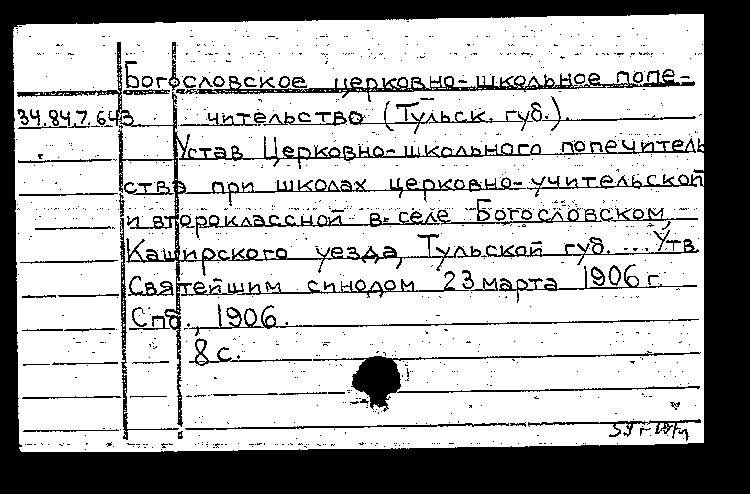 Богословское церковно-школьное попе-
34.84.7.643 чительство (Тульск. губ.).
Устав Церковно-школьного попечитель
ства при школах церковно-учительской
и второклассной в селе Богословском,
Каширского уезда, Тульской губ. ... Утв.
Святейшим синодом 23 марта 1906 г.
Спб., 1906.
8 с.